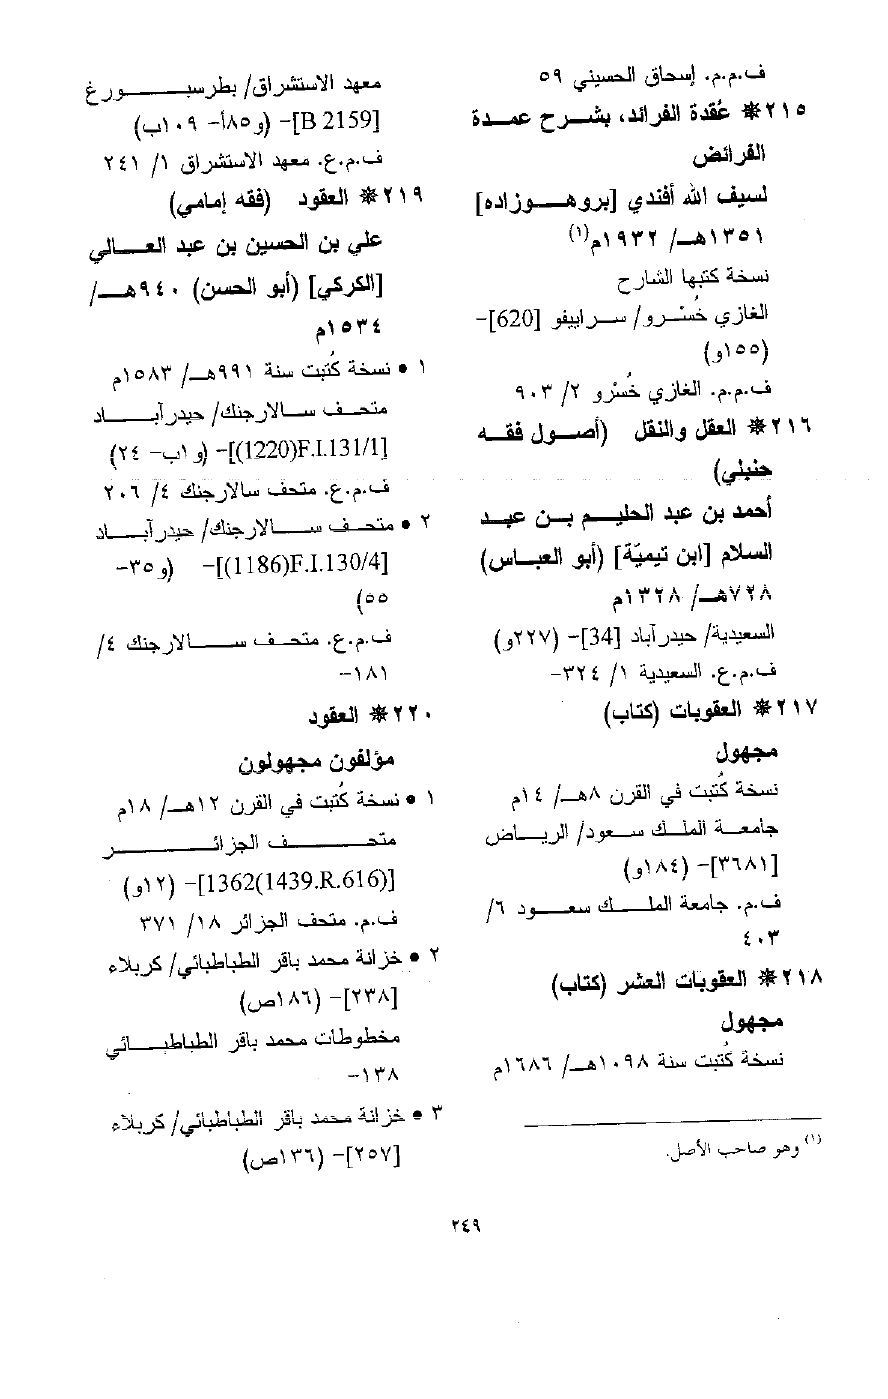 ف.م.م. إسحاق الحسيني ٥٩
٢١٥ * عُقدة الفرائد، بشرح عمدة
الفرائض
لسيف الله أفندي [بروهوزاده]
١٣٥١هـ/ ١٩٣٢م(١)
نسخة كتبها الشارح
الغازي خُسْرو/ سراييفو [620]-
(١٥٥و)
ف.م.م. الغازي خُسْرو ٢/ ٩٠٣
٢١٦ * العقل والنقل (أصول فقه
حنبلي)
أحمد بن عبد الحليم بن عبد
السلام [ابن تيميّة] (أبو العباس)
٧٢٨هـ/ ١٣٢٨م
السعيدية/ حيدرآباد [34]- (٢٢٧و)
ف.م.ع. السعيدية ١/ ٣٢٤-
٢١٧ * العقوبات (كتاب)
مجهول
نسخة كُتبت في القرن ٨هـ/ ١٤م
جامعة الملك سعود/ الرياض
[٣٦٨١]- (١٨٤و)
ف.م. جامعة الملك سعود ٦/
٤٠٣
٢١٨ * العقوبات العشر (كتاب)
مجهول
نسخة كُتبت سنة ١٠٩٨هـ/ ١٦٨٦م
(١) وهو صاحب الأصل.
معهد الاستشراق/ بطرسبورغ
[B 2159]- (و٨٥أ- ١٠٩ب)
ف.م.ع. معهد الاستشراق ١/ ٢٤١
٢١٩ * العقود (فقه إمامي)
علي بن الحسين بن عبد العالي
[الكركي] (أبو الحسن) ٩٤٠هـ/
١٥٣٤م
١ • نسخة كُتبت سنة ٩٩١هـ/ ١٥٨٣م
متحف سالارجنك/ حيدرآباد
[1220)F.I.131/1)]- (و١ب- ٢٤)
ف.م.ع. متحف سالارجنك ٤/ ٢٠٦
٢ • متحف سالارجنك/ حيدرآباد
[1186)F.I.130/4)]- (و٣٥-
٥٥)
ف.م.ع. متحف سالارجنك ٤/
١٨١-
٢٢٠ * العقود
مؤلفون مجهولون
١ • نسخة كُتبت في القرن ١٢هـ/ ١٨م
متحف الجزائر
[1362(1439.R.616)]- (١٢و)
ف.م. متحف الجزائر ١٨/ ٣٧١
٢ • خزانة محمد باقر الطباطبائي/ كربلاء
[٢٣٨]- (١٨٦ص)
مخطوطات محمد باقر الطباطبائي
١٣٨-
٣ • خزانة محمد باقر الطباطبائي/ كربلاء
[٢٥٧]- (١٣٦ص)
٢٤٩